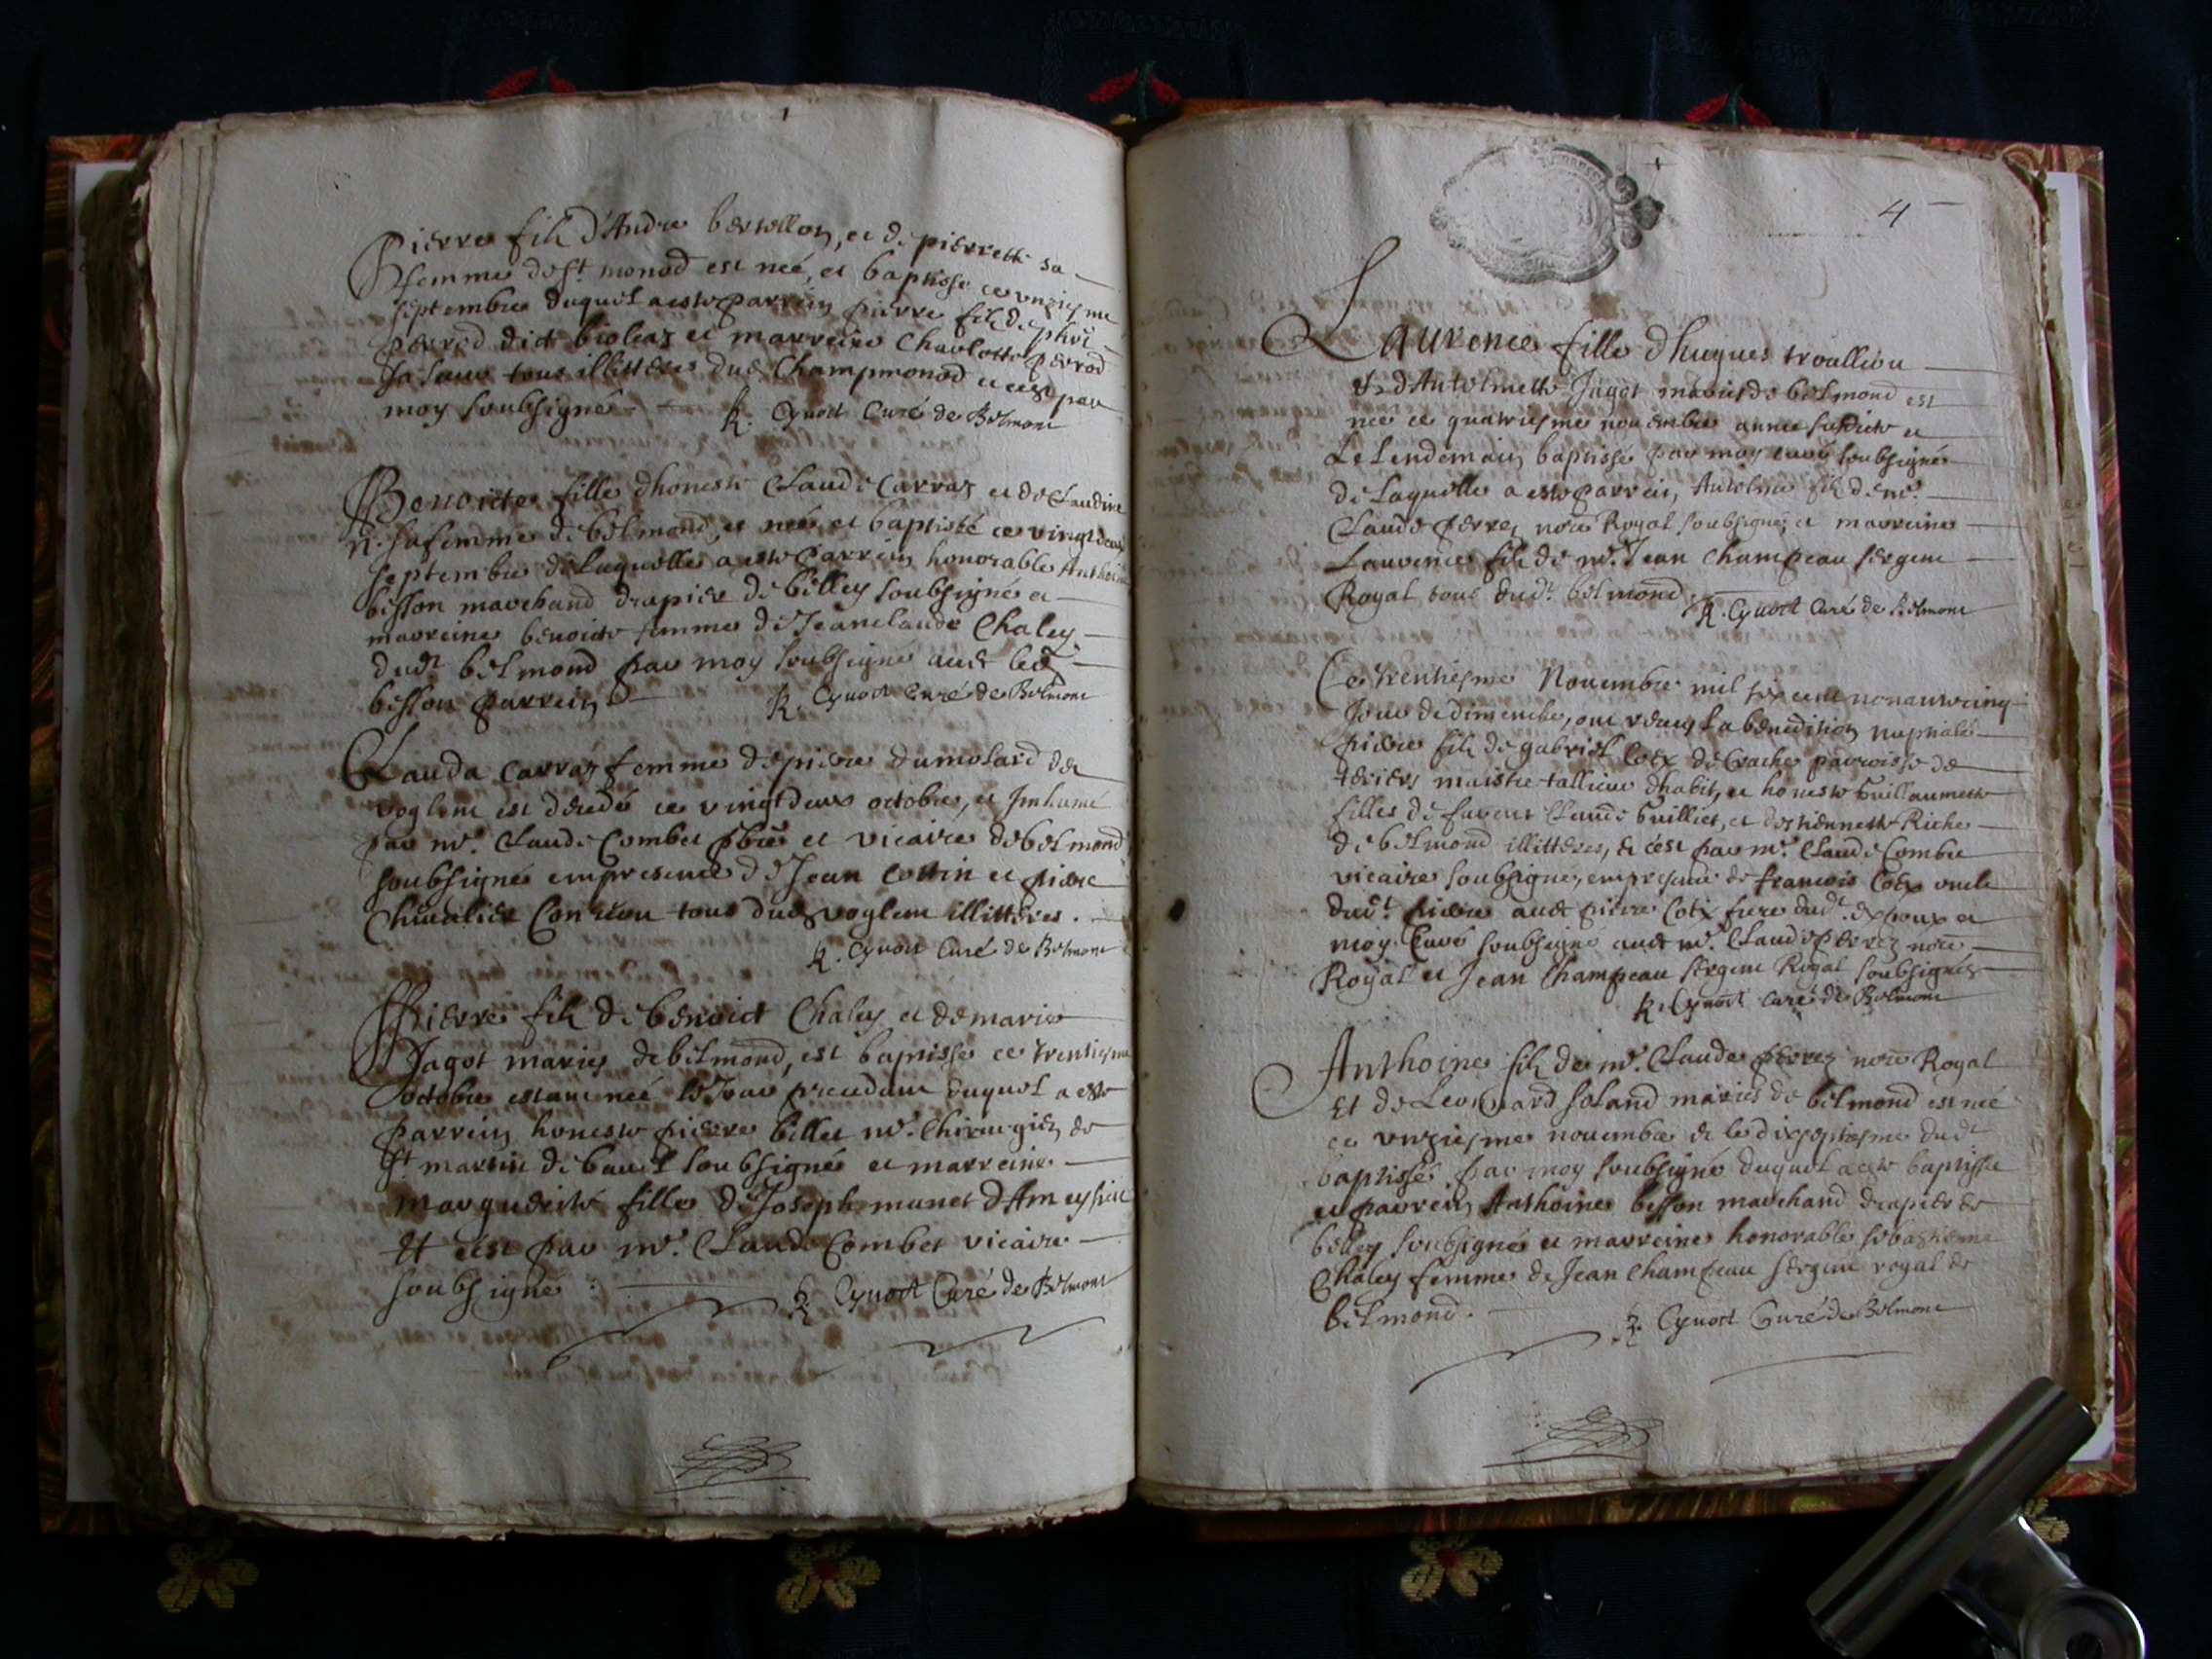 Pierre fils d'Andre bertellon, et de pierrette sa
femme de st monod est neé, et baptisse ce unziesme
septembre duquel a esté parrein pierre fils de
perrod dict bioleaz et marreine Charlotte perrod
sa tous illitteres dud Champmonod et c'est par
moy soubsigné. R. Cynod Curé de Belmont
Benoicte fille d'honeste Claude Carraz et de Claudine
N. sa femme de belmond, est neé, et baptisée ce vingt deux
septembre de laquelle a esté parrein honorable Anthoine
bisson marchand drapier de belley soubsigné et
marreine benoicte femme de Jeanclaude Chaley
dudt belmond par moy soubsigné auec led
bisson parrein R. Cynod Curé de Belmont
Clauda Carraz femme de piere dumolard de
voglem est decedeé ce vingtdeux octobre, et Inhumé
par mr. Claude Combet pbre et vicaire de belmond
soubsigné en presence de Jean Cottin et piere
Cheualier tous dud voglem illitteres.
R. Cynod Curé de Belmont
Pierre fils de benoict Chaley et de marie
Jagot mariés de belmond, est baptisse ce trentiesme
octobre estant neé le Jour precedant duquel a esté
parrein honeste piere billet mr. Chirurgien de
St martin de bauel soubsigné et marreine
marguerite fille de Joseph munet d'Ameysieu
Et c'est par mr. Claude Combet vicaire
soubsigné: R. Cynod Curé de Belmont
4
Laurence fille d'hugues troullieu
et d'Antelmette Jagot mariés de belmond est
neé ce quatriesme nouembre annee susdicte et
le lendemain baptisse par moy curé soubsigné
de laquelle a esté parrein, Antelme fils de mr.
Claude perrez nore Royal soubsigné, et marreine
Laurence fille de mr. Jean Champeau sergent
Royal tous dudt belmond. R. Cynod Curé de Belmont
Ce trentiesme Nouembre mil six cent nonante cinq
Jour de dimenche, ont receu la benediction nuptiale
piere fils de gabriel Cotx de Crache parroisse de
maistre tallieur d'habit, et honeste Guillaumette
filles de Claude Guilliet, et d'estiennette Riche
de belmond illitteres, et c'est par mr. Claude Combet
vicaire soubsigné, en presence de francois Cotx oncle
dudt. piere auec piere Cotx frere dudt. espoux et
moy Curé soubsigné auec mr. Claude perrez nore
Royal et Jean Champeau sergent Royal soubsignés
R. Cynod Curé de Belmont
Anthoine fils de mr. Claude perrez nore Royal
Et de Leonard soland mariés de belmond est né
ce unziesme nouembre et le dixseptiesme dudt
baptissé par moy soubsigné duquel a esté baptisse
et parrein Anthoine bisson marchand drapier de
belley soubsigné et marreine honorable sebastienne
Chaley femme de Jean Champeau sergent royal de
belmond. R. Cynod Curé de Belmont